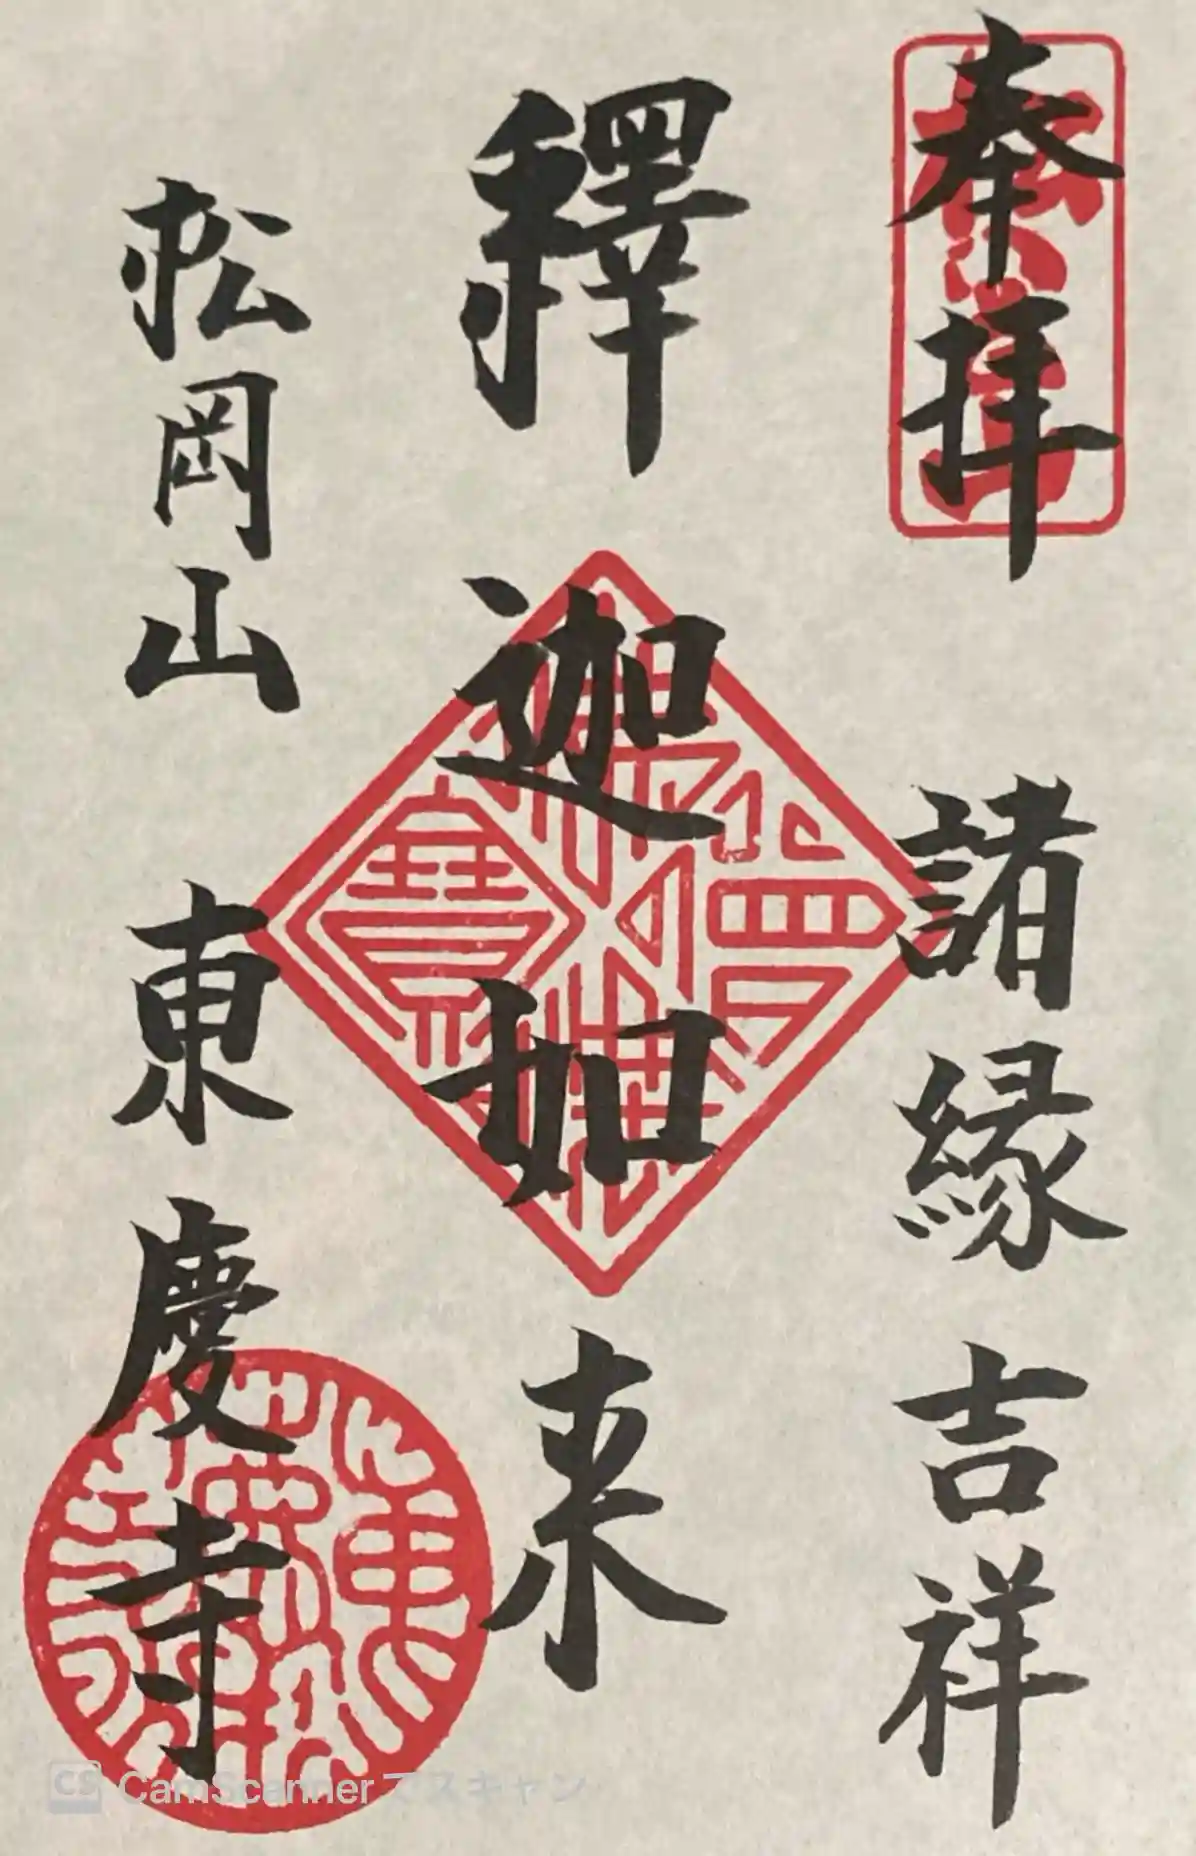 奉拝
諸縁吉祥
釋迦如来
松岡山
東慶寺
CS CamScanner でスキャン